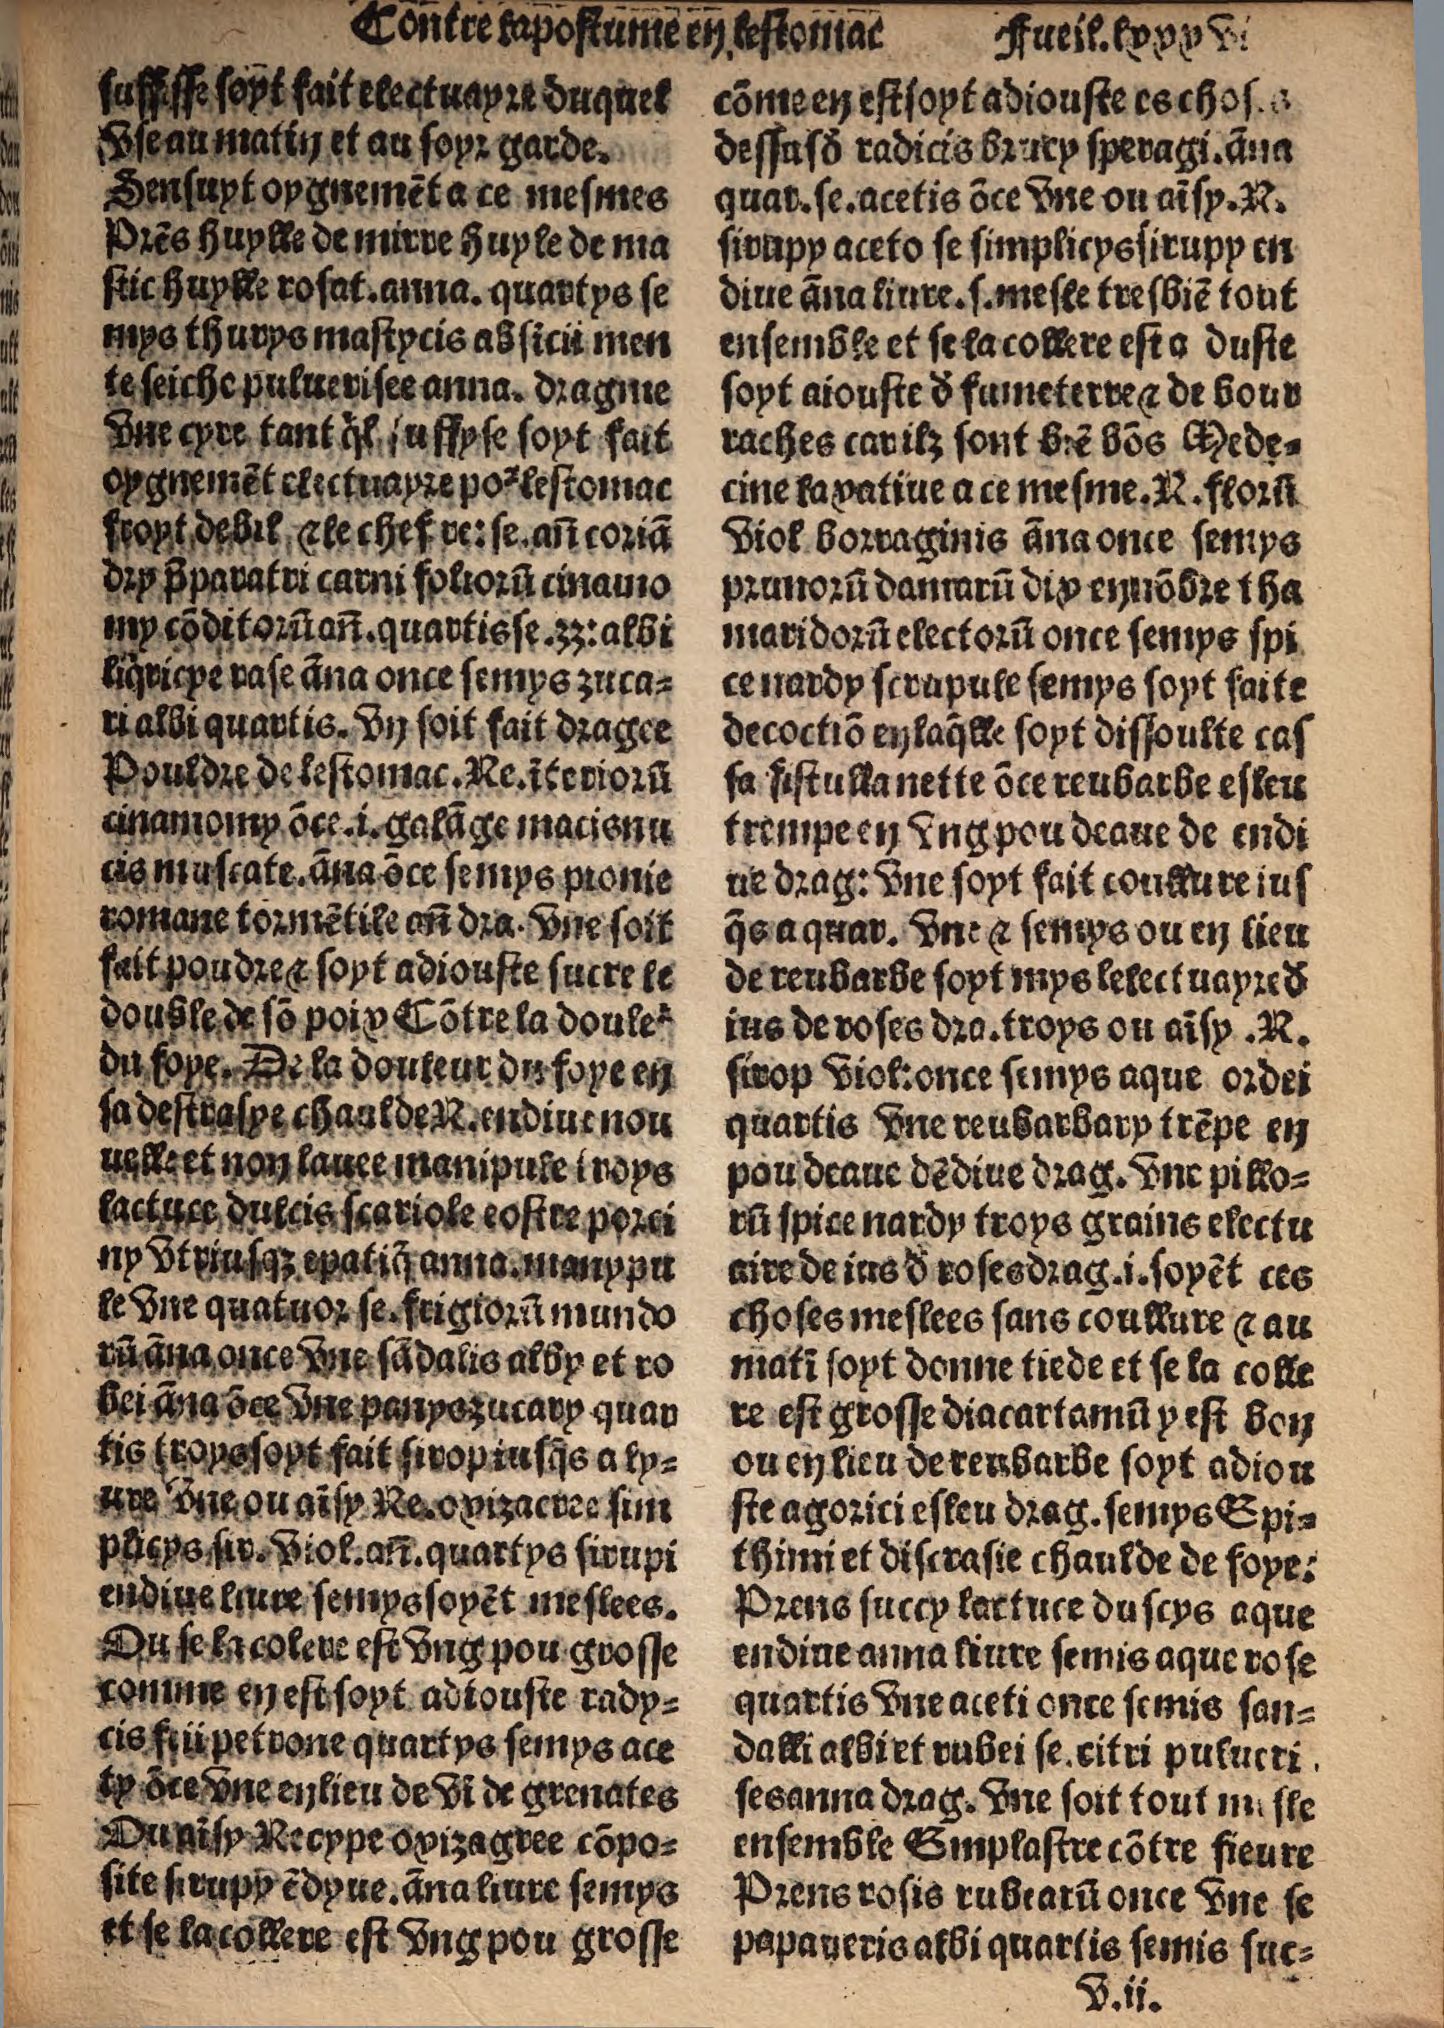 Cõntre lapostũme eñ lestomac Fueil.lxxxvi
suffisse soyt fait electuayre duquel
Use au matin et au soyr garde.
Sensuyt oygnemẽt a ce mesmes
Prẽs huylle de mirre huyle de ma
stic huylle rosat.anna. quartys se
mys thurys mastycis absicii men
te seiche puluerisee anna. dragme
Une cyre tant q̃l suffyse soyt fait
oygnemẽt electuayre por lestomac
froyt debil ⁊ le chef re: se.añ coriã
dry p̃paratri carni foliorũ cinamo
my cõditorũ añ.quartis se.ʒʒ:albi
liq̃ricye rase ãna once semys zuca-
ri albi quartis. Un soit fait dragee
Pouldre de lestomac.Re.ĩteriorũ
cinamomy õce.i.galãge macis nu
cis muscate.ãna õce semys pionie
romane tormẽtile añ dra. Une soit
fait poudre ⁊ soyt adiouste sucre le
double de sõ poix Cõtre la douler
du foye. De la douleur du foye en
sa destraspe chaulde R.endiue nou
uelle et non lauee manipule troys
lactuce dulcis scariole eostre porci
ny Utriusqʒ epatiq̃ anna.manypu
le Une quatuor se.frigiorũ mundo
rũ ãna once Une sãdalis alby et ro
bei ãna õce Une panys zucary quar
tis troys soyt fait sirop iusq̃s a ly-
ure Une ou aĩsy Re.oxizacree sim
plicys sir. Viol.añ.quartys sirupi
endiue liure semys soyẽt meslees.
Ou se la colere est Ung pou grosse
comme en est soyt adiouste rady-
cis feii petrone quartys semys ace
ty õce Une en lieu de Vĩ de grenates
Ou aĩsy Recype oxizagree cõpo-
site sirupy ẽdyue.ãna liure semys
et se la collere est Ung pou grosse
cõme en est soyt adiouste es
dessusd̃ radicis brucy speragi.ãna
quar.se.acetis õce Une ou aĩsy.R.
sirupy aceto se simplicys sirupy en
diue ãna liure.s.mesle tresbiẽ tout
ensemble et se la collere est a duste
soyt aiouste d̃ fumeterre ⁊ de bour
raches car ilz sont biẽ bõs Mede-
cine laxatiue a ce mesme.R.florũ
Viol borraginis ãna once semys
prunorũ damarũ dix en nõbre tha
maridorũ electorũ once semys spi
ce nardy scrupule semys soyt faite
decoctiõ en laq̃lle soyt dissoulte cas
sa fistulla nette õce reubarbe esleu
trempe en Ung pou deaue de endi
ue drag: Une soyt fait coullure ius
q̃s a quar. Une ⁊ semys ou en lieu
de reubarbe soyt mys lelectuayre d̃
ius de roses dra.troys ou aĩsy .R.
sirop Viol:once semys aque ordei
quartis Une reubarbary trẽpe en
pou deaue dẽdiue drag. Une pillo-
rũ spice nardy troys grains electu
aire de ius d̃ roses drag.i.soyẽt ces
choses meslees sans coullure ⁊ au
matĩ soyt donne tiede et se la colle
re est grosse diacartamũ y est bon
ou en lieu de reubarbe soyt adiou
ste agorici esleu drag.semys Epi-
thimi et discrasie chaulde de foye:
Prens succy lactuce duscys aque
endiue anna liure semis aque rose
quartis Une aceti once semis san-
dalli albi et rubei se.citri pulueri
ses anna drag. Une soit tout
ensemble Emplastre cõtre fieure
Prens rosis rubearũ once Une se
papaueris albi quartis semis suc-
V.ii.